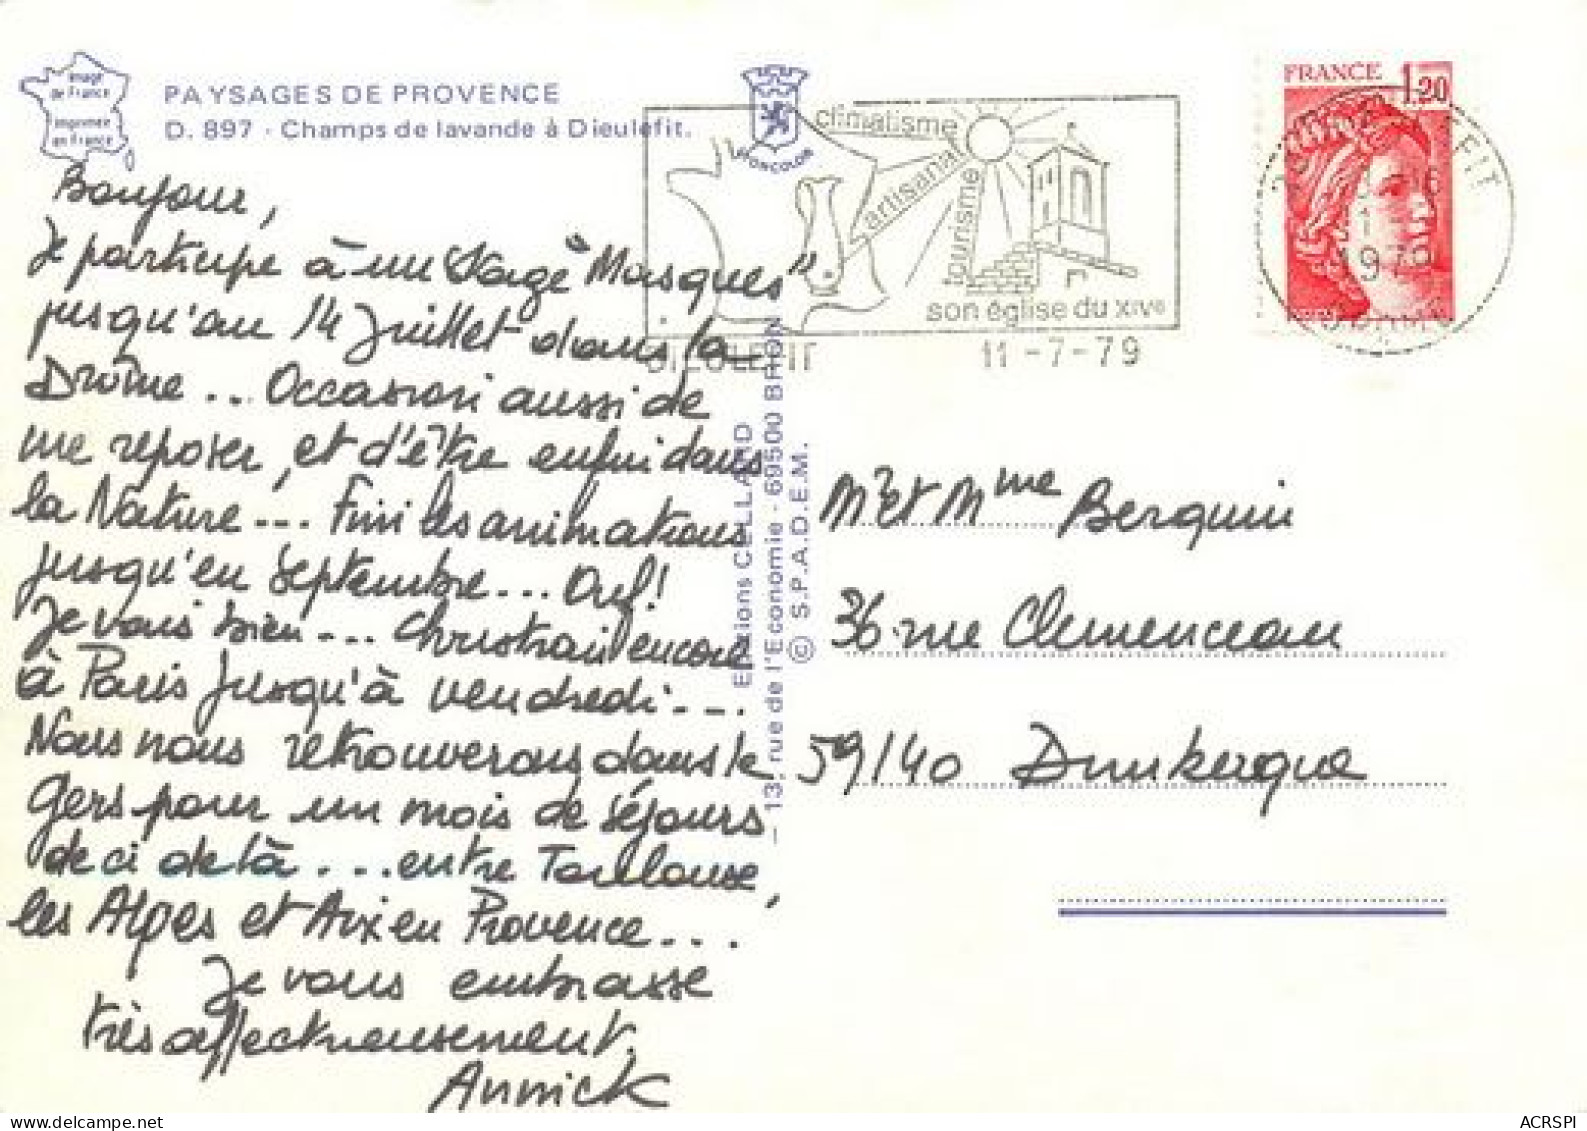 Image
de France
imprimée
en France
PAYSAGES DE PROVENCE
D. 897 - Champs de lavande à Dieulefit.
MONCOLOR
climatisme
artisanat
tourisme
son église du XIVe
DIEULEFIT 11-7-79
FRANCE 1,20
1979
DROME
Bonjour,
Je participe à un "Stage Masques"
jusqu'au 14 Juillet dans la
Drôme... Occasion aussi de
me reposer, et d'être enfin dans
la Nature... Fini les animations
jusqu'en septembre... Ouf!
Je vais bien... Christian encore
à Paris jusqu'à vendredi...
Nous nous retrouverons dans le
Gers pour un mois de séjours
de ci de là... entre Toulouse,
les Alpes et Aix en Provence...
Je vous embrasse
très affectueusement.
Annick
Editions CELLARD
- 13, rue de l'Economie - 69500 BRON
© S.P.A.D.E.M.
Mr et Mme Berquin
36 rue Clemenceau
59140 Dunkerque
www.delcampe.net
ACRSPI